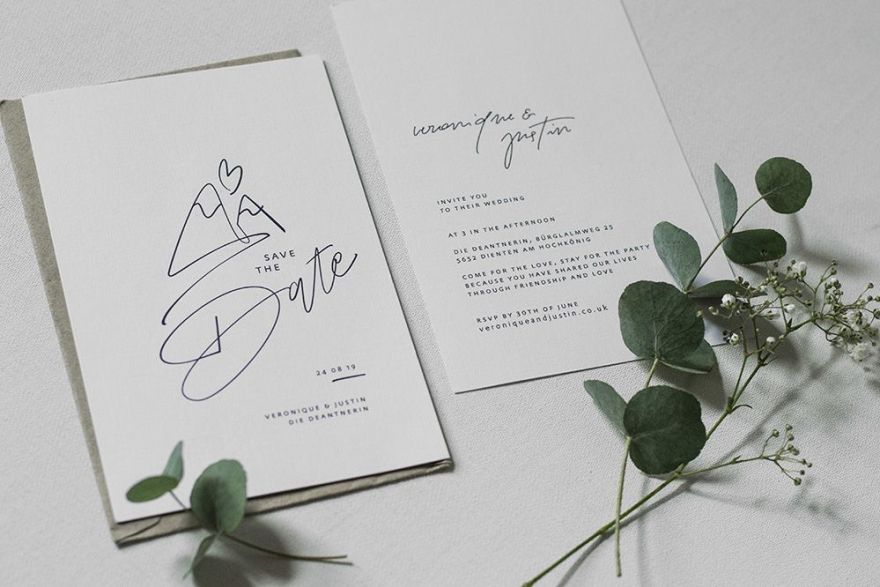 SAVE
THE
Date
24 08 19
VERONIQUE & JUSTIN
DIE DEANTNERIN
veronique &
justin
INVITE YOU
TO THEIR WEDDING
AT 3 IN THE AFTERNOON
DIE DEANTNERIN, BÜRGLALMWEG 25
5652 DIENTEN AM HOCHKÖNIG
COME FOR THE LOVE, STAY FOR THE PARTY
BECAUSE YOU HAVE SHARED OUR LIVES
THROUGH FRIENDSHIP AND LOVE
RSVP BY 30TH OF JUNE
veroniqueandjustin.co.uk